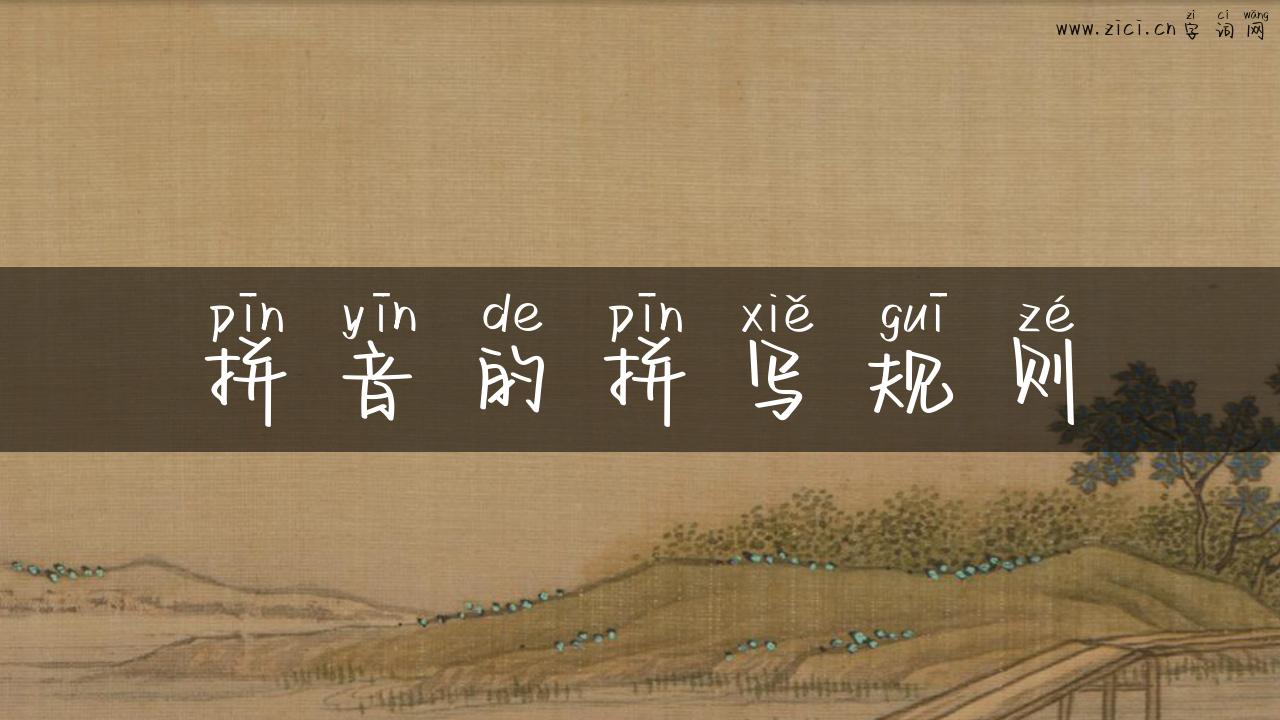 zì cí wǎng
www.zici.cn 字 词 网
pīn yīn de pīn xiě guī zé
拼 音 的 拼 写 规 则